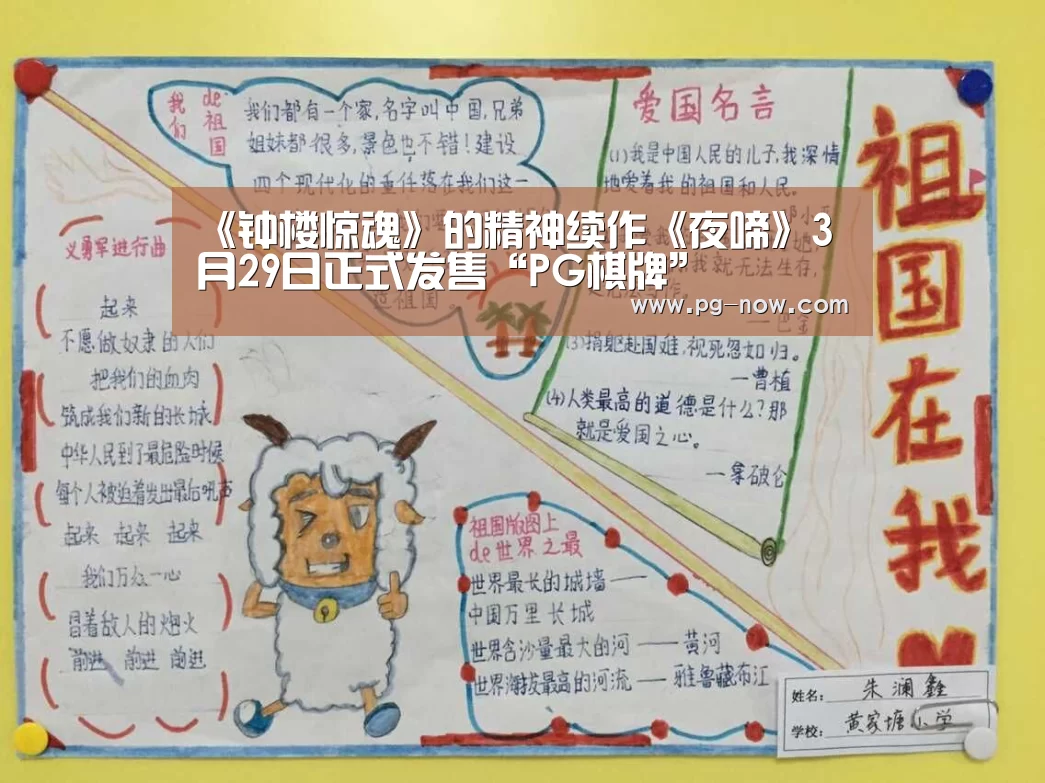 《钟楼惊魂》的精神续作《夜啼》3
月29日正式发售“PG棋牌”
www.pg-now.com
我们
de祖国
我们都有一个家,名字叫中国,兄弟
姐妹都很多,景色也不错!建设
四个现代化的重任落在我们这一
爱国名言
(1)我是中国人民的儿子,我深情
地爱着我的祖国和人民。
我就无法生存,
(3)捐躯赴国难,视死忽如归。
—曹植
(4)人类最高的道德是什么?那
就是爱国之心。
—拿破仑
祖国在我
义勇军进行曲
起来
不愿做奴隶的人们
把我们的血肉
筑成我们新的长城
中华人民到了最危险时候
每个人被迫着发出最后吼声
起来 起来 起来
我们万众一心
冒着敌人的炮火
前进 前进 前进
祖国版图上
de世界之最
世界最长的城墙——
中国万里长城
世界含沙量最大的河——黄河
世界海拔最高的河流——雅鲁藏布江
姓名: 朱澜鑫
学校: 黄家塘小学